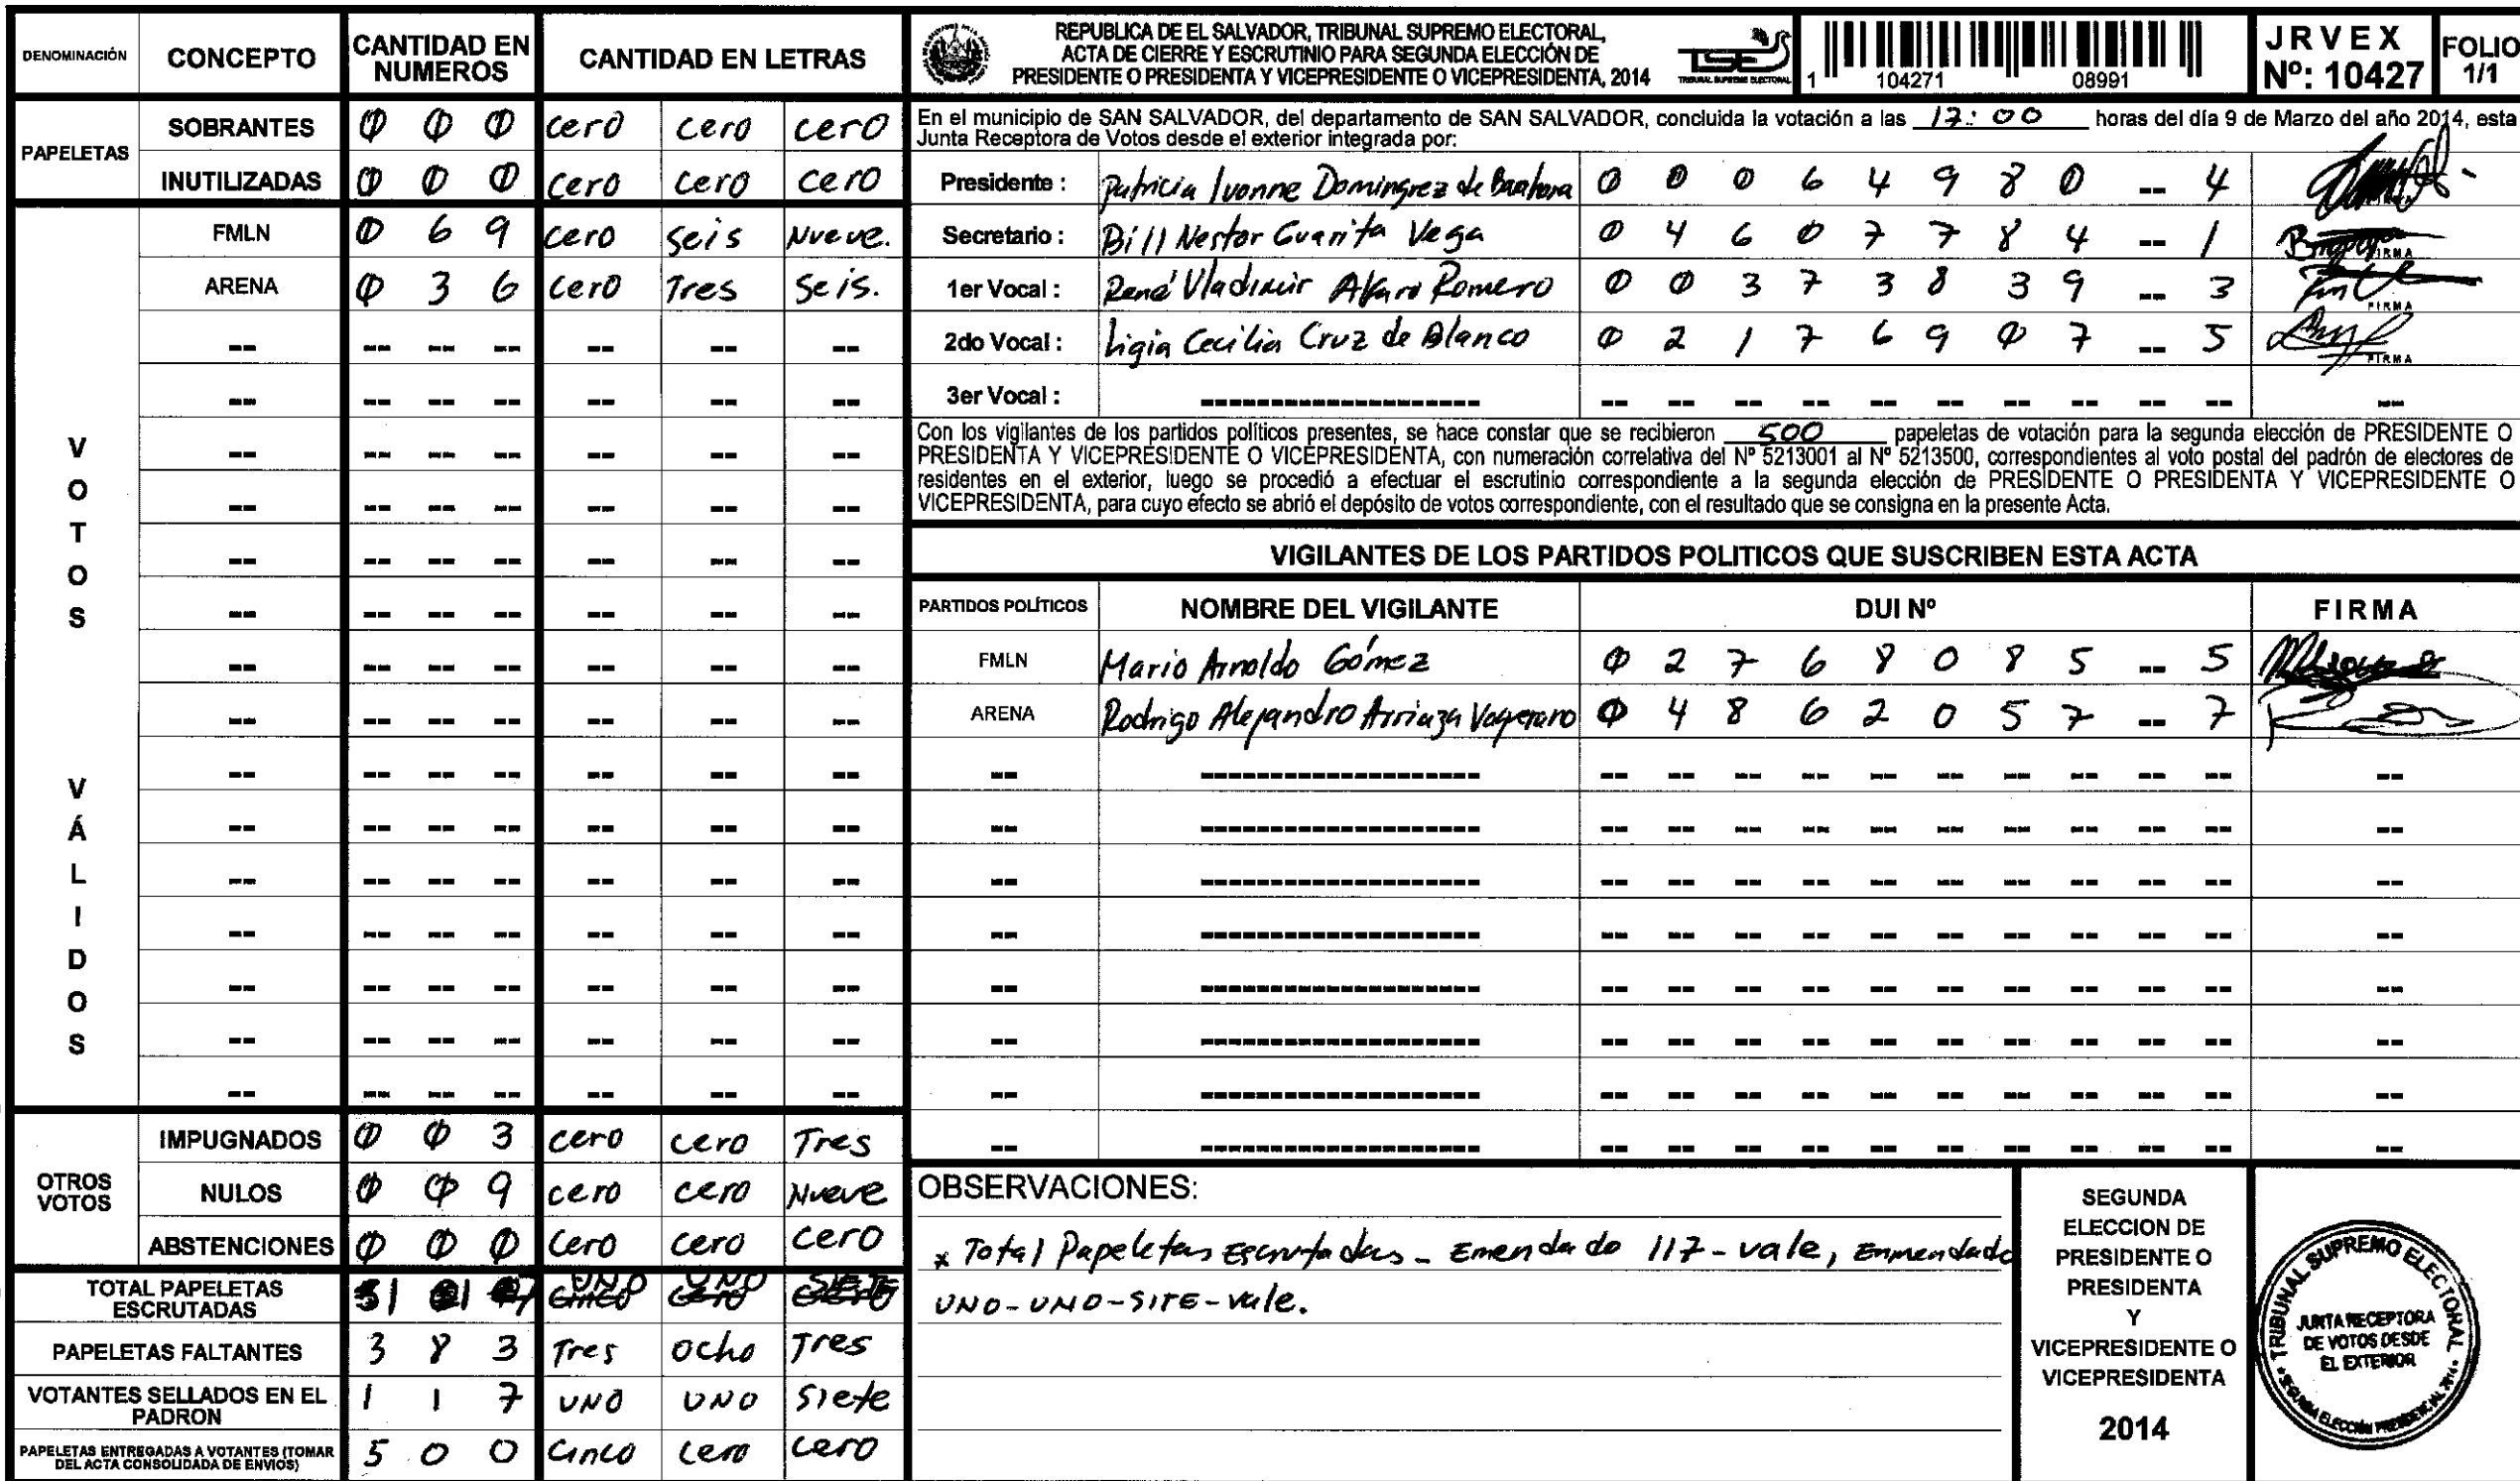 DENOMINACIÓN CONCEPTO CANTIDAD EN NUMEROS CANTIDAD EN LETRAS
PAPELETAS
SOBRANTES 0 0 0 cero cero cero
INUTILIZADAS 0 0 0 cero cero cero
VOTOS VÁLIDOS
FMLN 0 6 9 cero seis Nueve.
ARENA 0 3 6 cero Tres Seis.
OTROS VOTOS
IMPUGNADOS 0 0 3 cero cero Tres
NULOS 0 0 9 cero cero Nueve
ABSTENCIONES 0 0 0 cero cero cero
TOTAL PAPELETAS ESCRUTADAS 1 1 7 UNO UNO SIETE
PAPELETAS FALTANTES 3 8 3 Tres ocho Tres
VOTANTES SELLADOS EN EL PADRON 1 1 7 UNO UNO Siete
PAPELETAS ENTREGADAS A VOTANTES (TOMAR DEL ACTA CONSOLIDADA DE ENVIOS) 5 0 0 Cinco cero cero
REPUBLICA DE EL SALVADOR, TRIBUNAL SUPREMO ELECTORAL,
ACTA DE CIERRE Y ESCRUTINIO PARA SEGUNDA ELECCIÓN DE
PRESIDENTE O PRESIDENTA Y VICEPRESIDENTE O VICEPRESIDENTA, 2014
TSE
TRIBUNAL SUPREMO ELECTORAL
1 104271 08991
JRVEX Nº: 10427
FOLIO 1/1
En el municipio de SAN SALVADOR, del departamento de SAN SALVADOR, concluida la votación a las 17:00 horas del día 9 de Marzo del año 2014, esta
Junta Receptora de Votos desde el exterior integrada por:
Presidente : Patricia Ivonne Dominguez de 0 0 0 6 4 9 8 0 -- 4
Secretario : Bill Nestor Guanita Vega 0 4 6 0 7 7 8 4 -- 1 FIRMA
1er Vocal : René Vladimir Alfaro Romero 0 0 3 7 3 8 3 9 -- 3 FIRMA
2do Vocal : Ligia Cecilia Cruz de Blanco 0 2 1 7 6 9 0 7 -- 5 FIRMA
3er Vocal :
Con los vigilantes de los partidos políticos presentes, se hace constar que se recibieron 500 papeletas de votación para la segunda elección de PRESIDENTE O
PRESIDENTA Y VICEPRESIDENTE O VICEPRESIDENTA, con numeración correlativa del Nº 5213001 al Nº 5213500, correspondientes al voto postal del padrón de electores de
residentes en el exterior, luego se procedió a efectuar el escrutinio correspondiente a la segunda elección de PRESIDENTE O PRESIDENTA Y VICEPRESIDENTE O
VICEPRESIDENTA, para cuyo efecto se abrió el depósito de votos correspondiente, con el resultado que se consigna en la presente Acta.
VIGILANTES DE LOS PARTIDOS POLITICOS QUE SUSCRIBEN ESTA ACTA
PARTIDOS POLÍTICOS NOMBRE DEL VIGILANTE DUI Nº FIRMA
FMLN Mario Arnoldo Gómez 0 2 7 6 8 0 8 5 -- 5
ARENA Rodrigo Alejandro Arriaza 0 4 8 6 2 0 5 7 -- 7
OBSERVACIONES:
x Total Papeletas Escrutadas - Emendado 117-vale, Enmendado
UNO-UNO-SITE-vale.
SEGUNDA
ELECCION DE
PRESIDENTE O
PRESIDENTA
Y
VICEPRESIDENTE O
VICEPRESIDENTA
2014
TRIBUNAL SUPREMO ELECTORAL
JUNTA RECEPTORA
DE VOTOS DESDE
EL EXTERIOR
SEGUNDA ELECCIÓN PRESIDENCIAL 2014